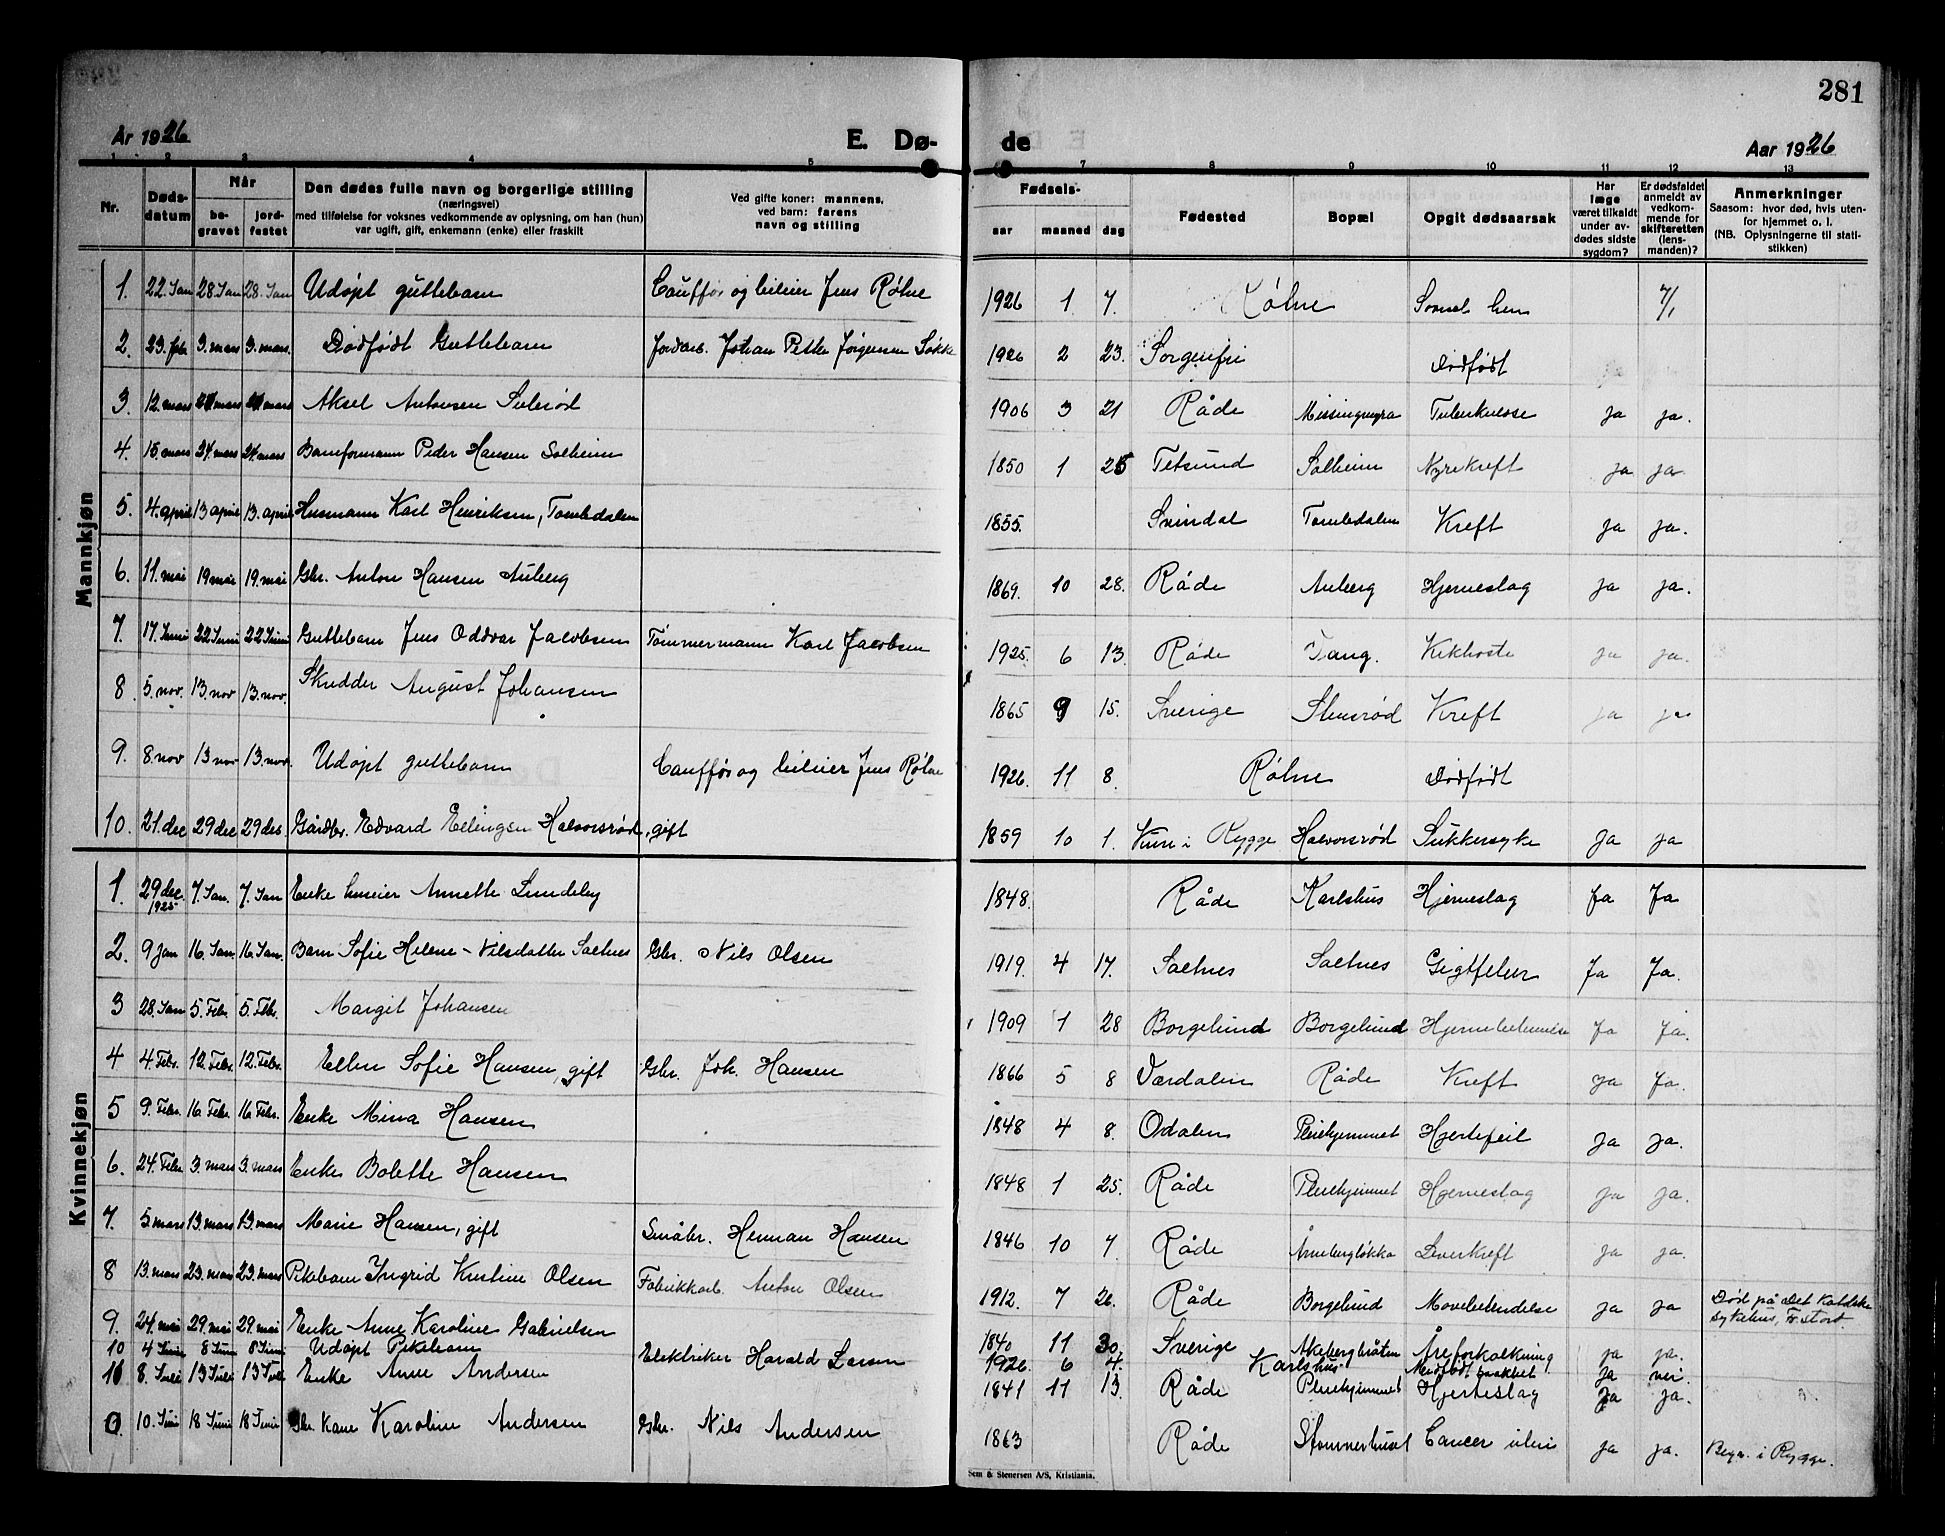 281
År 1926 E. Dø- de Aar 1926
1 2 3 4 5 7 8 9 10 11 12 13
Nr. Døds-datum Når be-gravet jord-festet Den dødes fulle navn og borgerlige stilling (næringsvei) med tilføielse for voksnes vedkommende av oplysning, om han (hun) var ugift, gift, enkemann (enke) eller fraskilt Ved gifte koner: mannens, ved barn: farens navn og stilling Fødsels- aar maaned dag Fødested Bopæl Opgit dødsaarsak Har læge været tilkaldt under av-dødes sidste sygdom? Er dødsfaldet anmeldt av vedkom-mende for skifteretten (lens-manden)? Anmerkninger Saasom: hvor død, hvis uten-for hjemmet o. l. (NB. Oplysningerne til stati-stikken)
Mannkjøn
1. 22. Jan 28. Jan 28. Jan Udøpt guttebarn Jens Rølne 1926 1 7. Rølne 7/1
2. 23. feb 3. mars 3. mars. Dødfødt Guttebarn Jordarb. Johan Petter Jørgensen 1926 2 23. Sorgenfri Dødfødt
3. 12. mars Aksel Antonsen 1906 3 21 Råde Missingmyra Tuberkulose ja ja.
4. 15. mars 24 mars 24. mars Baneformann Peder Hansen Solheim 1850 1 25 Tetsund Solheim Nyrekreft ja ja
5. 4. april 13 april 13. april Husmann Karl Henriksen, Tombdalen 1855. Svindal Tombdalen Kreft ja ja.
6. 11. mai 19 mai 19. mai Gbr. Anton Hansen Auberg 1869. 10 28. Råde Auberg Hjerneslag ja ja.
7. 17. Juni 22 Juni 22 Juni Guttebarn Jens Oddvar Jacobsen Tømmermann Karl Jacobsen 1925. 6 13. Råde Tang. Kikhoste ja ja.
8. 5. nov. 13. nov 13. nov. Skredder August Johansen 1865 9 15. Sverige Stensrød Kreft ja ja
9. 8. nov 13 nov 13. nov. Udøpt guttebarn Jens Rølne 1926. 11 8. Rølne Dødfødt
10. 21. dec 29 dec 29 des. Gårdbr. Edvard Ellingsen Halvorsrød, gift 1859 10 1. i Rygge Halvorsrød Sukkersyke ja ja
Kvinnekjøn
1. 29 dec 1925 7. Jan. 7. Jan Enke Annette Lundeby 1848. Råde Karlshus Hjerneslag Ja Ja
2. 9 Jan 16. Jan. 16. Jan. Barn Sofie Helene Nilsdatter Saltnes Gbr. Nils Olsen 1919. 4 17. Saltnes Saltnes Gigtfeber Ja Ja.
3 28. Jan 5. Febr. 5. Febr. Margit Johansen 1909 1 28 Borgelund Borgelund Ja Ja.
4 4. Febr. 12. Febr. 12. Febr. Ellen Sofie Hansen, gift Gbr. Joh. Hansen 1866 5 8 Værdalen Råde Kreft ja Ja.
5 9. Febr. 16 Febr. 16 Febr. Enke Mina Hansen 1848 4 8. Odalen Pleiehjemmet Hjertefeil ja ja.
6. 24. Febr 3. mars 3. mars Enke Bolette Hansen 1848 1 25. Råde Pleiehjemmet Hjerneslag ja ja.
7. 5. mars 13. mars 13. mars Marie Hansen, gift Småbr. Herman Hansen 1846 10 7. Råde Årnebergløkka Leverkreft ja ja.
8 13. mars 23. mars 23. mars Pikebarn Ingrid Kristine Olsen Fabrikkarb. Anton Olsen 1912. 7 26. Råde Borgelund ja ja Død på Det katolske sykehus, Fr.stad.
9. 24. mai 29. mai 29. mai Enke Anne Karoline Gabrielsen 1840 11 30. Sverige Akebergbråten Åreforkalkning ja ja.
10 4 Juni 8 Juni 8 Juni Udøpt Pikebarn Elektriker Harald Larsen 1926. 6 4. Karlshus ja nei.
11 8. Juli 13 Juli 13 Juli Enke Anne Andersen 1841 11 13. Råde Pleiehjemmet Hjerteslag ja ja.
10. Juni 18 Juni 18 Juni Gbr. Kone Karoline Andersen Gbr. Nils Andersen 1863 Råde Cancer uteri ja ja. Begr. i Rygge.
Sem & Stenersen A/S, Kristiania.